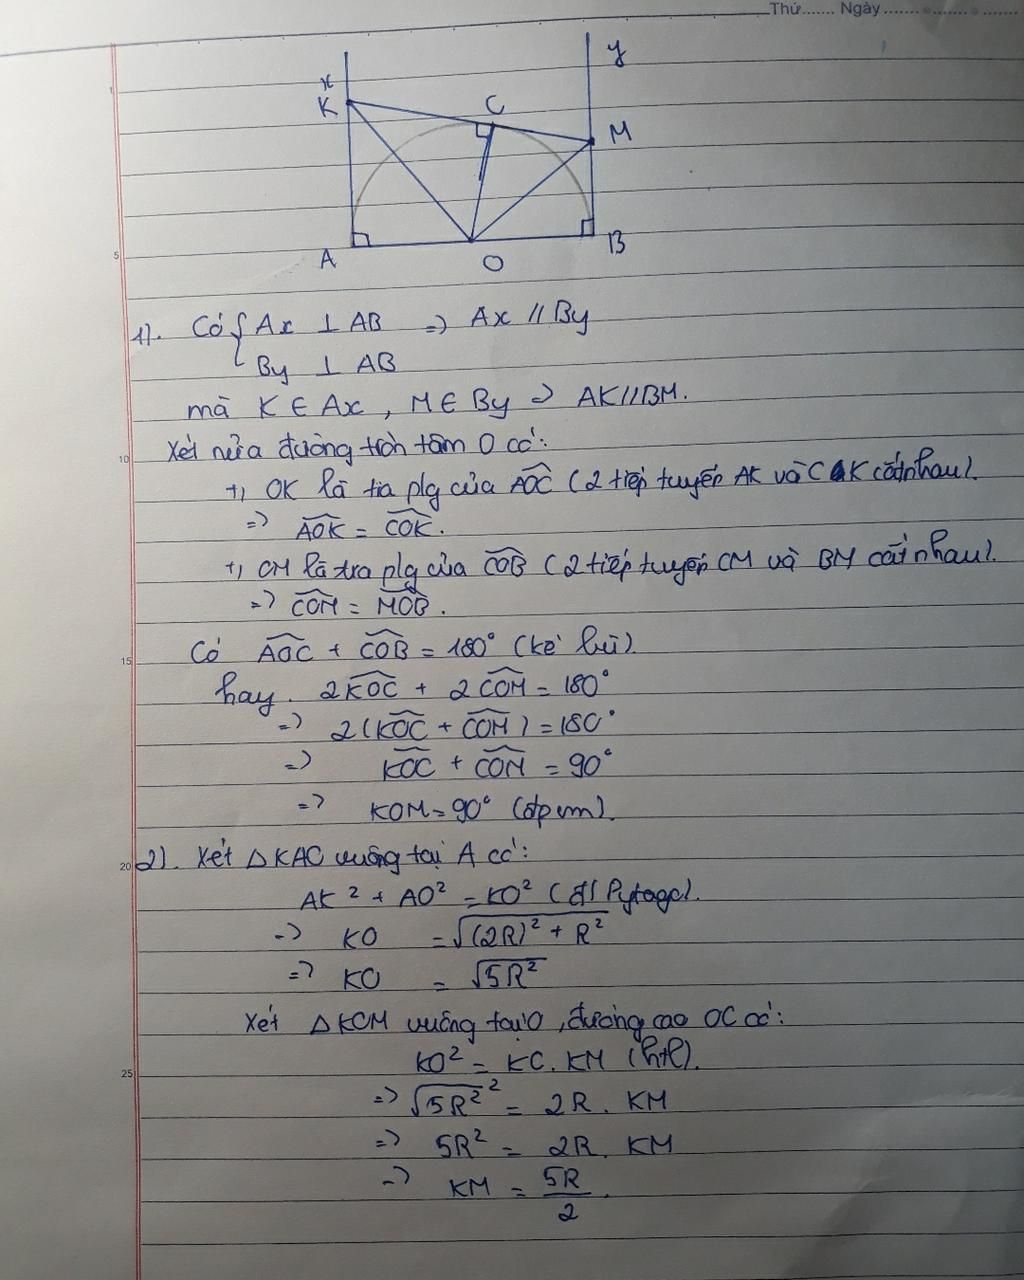 Thứ....... Ngày.......
x
y
K
C
M
A
O
B
5
1). Có { Ax ⊥ AB => Ax // By
By ⊥ AB
mà K ∈ Ax, M ∈ By => AK//BM.
10 Xét nửa đường tròn tâm O có:
+, OK là tia plg của AOC (2 tiếp tuyến AK và CK cắt nhau).
=> AOK = COK.
+, OM là tia plg của COB (2 tiếp tuyến CM và BM cắt nhau).
=> COM = MOB.
15 Có AOC + COB = 180° (kề bù)
hay. 2KOC + 2COM = 180°
=> 2(KOC + COM) = 180°
=> KOC + COM = 90°
=> KOM = 90° (đpcm).
20 2). Xét △KAO vuông tại A có:
AK² + AO² = KO² (đl Pytago).
=> KO = √((2R)² + R²)
=> KO = √(5R²)
Xét △KOM vuông tại O, đường cao OC có:
25 KO² = KC. KM (htl).
=> √(5R²)² = 2R. KM
=> 5R² = 2R. KM
=> KM = 5R/2.